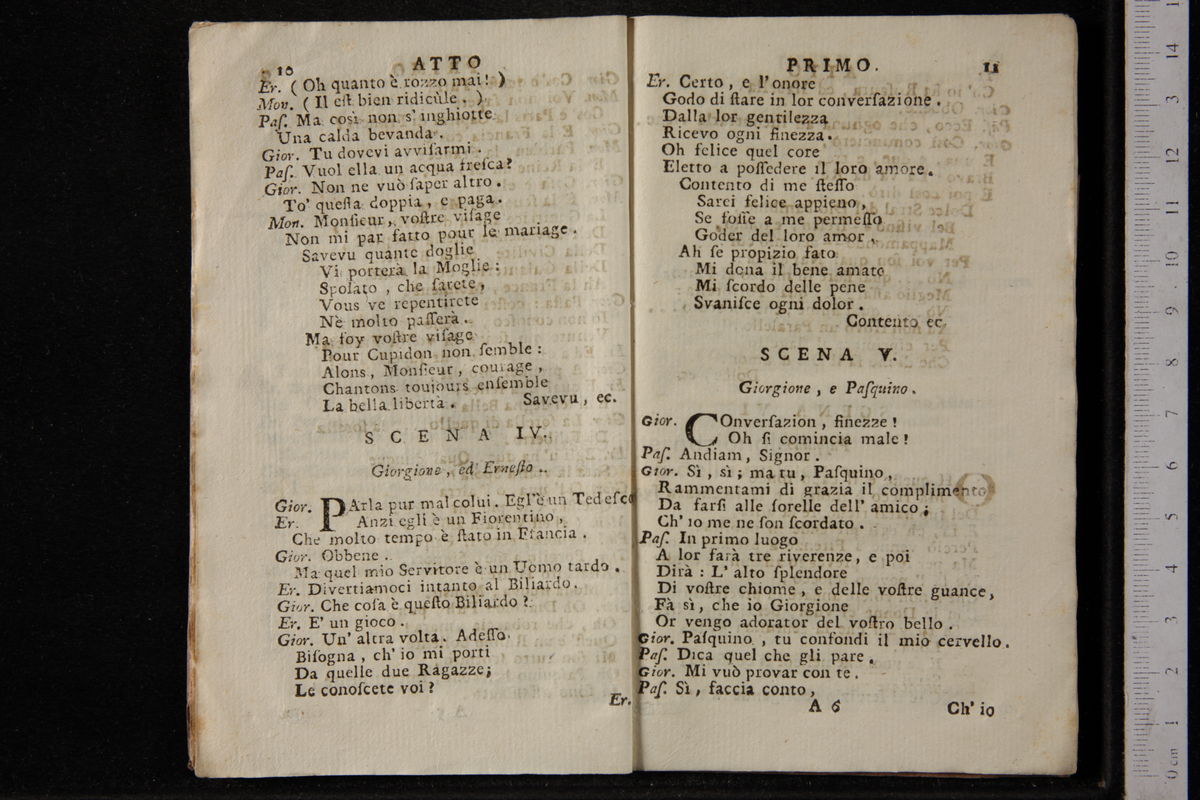 10 ATTO
Er. ( Oh quanto è rozzo mai! )
Mon. ( Il est bien ridicùle. )
Paſ. Ma così non s'inghiotte
Una calda bevanda.
Gior. Tu dovevi avviſarmi.
Paſ. Vuol ella un acqua freſca?
Gior. Non ne vuò ſaper altro.
To' queſta doppia, e paga.
Mon. Monſieur, voſtre viſage
Non mi par fatto pour le mariage.
Savevu quante doglie
Vi porterà la Moglie:
Spoſato, che ſarete,
Vous ve repentirete
Nè molto paſſerà.
Ma foy voſtre viſage
Pour Cupidon non ſemble:
Alons, Monſieur, courage,
Chantons toujours enſemble
La bella libertà. Savevu, ec.
SCENA IV.
Giorgione, ed Erneſto.
Gior. PArla pur mal colui. Egl'è un Tedeſco
Er. Anzi egli è un Fiorentino,
Che molto tempo è ſtato in Francia.
Gior. Obbene.
Ma quel mio Servitore è un Uomo tardo.
Er. Divertiamoci intanto al Biliardo.
Gior. Che coſa è queſto Biliardo?
Er. E' un gioco.
Gior. Un' altra volta. Adeſſo
Biſogna, ch'io mi porti
Da quelle due Ragazze;
Le conoſcete voi?
Er.
PRIMO. 11
Er. Certo, e l'onore
Godo di ſtare in lor converſazione.
Dalla lor gentilezza
Ricevo ogni finezza.
Oh felice quel core
Eletto a poſſedere il loro amore.
Contento di me ſteſſo
Sarei felice appieno,
Se foſſe a me permeſſo
Goder del loro amor,
Ah ſe propizio fato
Mi dona il bene amato
Mi ſcordo delle pene
Svaniſce ogni dolor.
Contento ec.
SCENA V.
Giorgione, e Paſquino.
Gior. COnverſazion, finezze!
Oh ſi comincia male!
Paſ. Andiam, Signor.
Gior. Sì, sì; ma tu, Paſquino,
Rammentami di grazia il complimento
Da farſi alle ſorelle dell' amico;
Ch' io me ne ſon ſcordato.
Paſ. In primo luogo
A lor farà tre riverenze, e poi
Dirà: L' alto ſplendore
Di voſtre chiome, e delle voſtre guance,
Fà sì, che io Giorgione
Or vengo adorator del voſtro bello.
Gior. Paſquino, tu confondi il mio cervello.
Paſ. Dica quel che gli pare.
Gior. Mi vuò provar con te.
Paſ. Sì, faccia conto,
A 6 Ch' io
0 cm 1 2 3 4 5 6 7 8 9 10 11 12 13 14